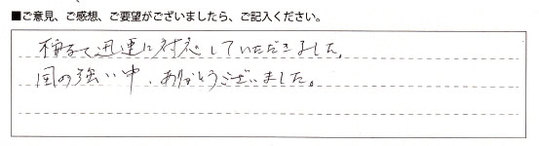 ■ご意見、ご感想、ご要望がございましたら、ご記入ください。
極めて迅速に対応していただきました。
風の強い中、ありがとうございました。